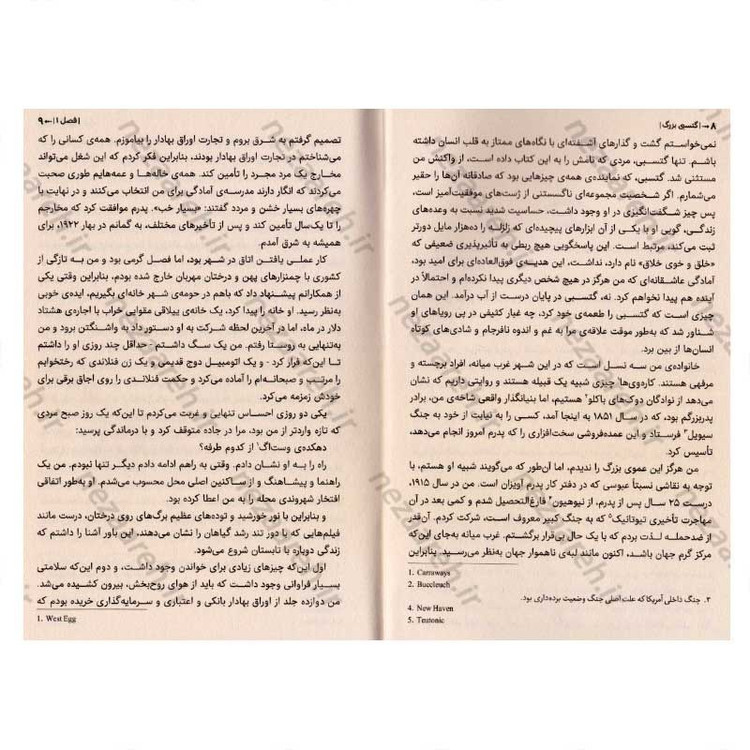 ۸ → | گتسبی بزرگ |
نمی‌خواستم گشت و گذارهای آشفته‌ای با نگاه‌های ممتاز به قلب انسان داشته
باشم. تنها گتسبی، مردی که نامش را به این کتاب داده است، از واکنش من
مستثنی شد. گتسبی، که نماینده‌ی همه‌ی چیزهایی بود که صادقانه آن‌ها را حقیر
می‌شمارم. اگر شخصیت مجموعه‌ای ناگسستنی از ژست‌های موفقیت‌آمیز است،
پس چیز شگفت‌انگیزی در او وجود داشت، حساسیت شدید نسبت به وعده‌های
زندگی، گویی او با یکی از آن ابزارهای پیچیده‌ای که زلزله را ده‌هزار مایل دورتر
ثبت می‌کند، مرتبط است. این پاسخگویی هیچ ربطی به تأثیرپذیری ضعیفی که
«خلق و خوی خلاق» نام دارد، نداشت، این هدیه‌ی فوق‌العاده‌ای برای امید بود،
آمادگی عاشقانه‌ای که من هرگز در هیچ شخص دیگری پیدا نکرده‌ام و احتمالاً در
آینده هم پیدا نخواهم کرد. نه، گتسبی در پایان درست از آب درآمد. این همان
چیزی است که گتسبی را طعمه‌ی خود کرد، چه غبار کثیفی در پی رویاهای او
شناور شد که به‌طور موقت علاقه‌ی مرا به غم و اندوه نافرجام و شادی‌های کوتاه
انسان‌ها از بین برد.
خانواده‌ی من سه نسل است که در این شهر غرب میانه، افراد برجسته و
مرفهی هستند. کاره‌وی‌ها¹ چیزی شبیه یک قبیله هستند و روایتی داریم که نشان
می‌دهد از نوادگان دوک‌های باکلو² هستیم، اما بنیانگذار واقعی شاخه‌ی من، برادر
پدربزرگم بود، که در سال ۱۸۵۱ به اینجا آمد، کسی را به نیابت از خود به جنگ
سیویل³ فرستاد و این عمده‌فروشی سخت‌افزاری را که پدرم امروز انجام می‌دهد،
تأسیس کرد.
من هرگز این عموی بزرگ را ندیدم، اما آن‌طور که می‌گویند شبیه او هستم، با
توجه به نقاشی نسبتاً عبوسی که در دفتر کار پدرم آویزان است. من در سال ۱۹۱۵،
درست ۲۵ سال پس از پدرم، از نیوهیون⁴ فارغ‌التحصیل شدم و کمی بعد در آن
مهاجرت تأخیری تیوتانیک⁵ که به جنگ کبیر معروف است، شرکت کردم. آن‌قدر
از ضدحمله لذت بردم که با یک حال بی‌قرار برگشتم. غرب میانه به‌جای این‌که
مرکز گرم جهان باشد، اکنون مانند لبه‌ی ناهموار جهان به‌نظر می‌رسید. بنابراین
1. Carraways
2. Buccleuch
۳. جنگ داخلی آمریکا که علت اصلی جنگ وضعیت برده‌داری بود.
4. New Haven
5. Teutonic
| فصل ۱ | ← ۹
تصمیم گرفتم به شرق بروم و تجارت اوراق بهادار را بیاموزم. همه‌ی کسانی را که
می‌شناختم در تجارت اوراق بهادار بودند، بنابراین فکر کردم که این شغل می‌تواند
مخارج یک مرد مجرد را تأمین کند. همه‌ی خاله‌ها و عمه‌هایم طوری صحبت
می‌کردند که انگار دارند مدرسه‌ی آمادگی برای من انتخاب می‌کنند و در نهایت با
چهره‌های بسیار خشن و مردد گفتند: «بسیار خب». پدرم موافقت کرد که مخارجم
را تا یک‌سال تأمین کند و پس از تأخیرهای مختلف، به گمانم در بهار ۱۹۲۲، برای
همیشه به شرق آمدم.
کار عملی یافتن اتاق در شهر بود، اما فصل گرمی بود و من به تازگی از
کشوری با چمنزارهای پهن و درختان مهربان خارج شده بودم، بنابراین وقتی یکی
از همکارانم پیشنهاد داد که باهم در حومه‌ی شهر خانه‌ای بگیریم، ایده‌ی خوبی
به‌نظر رسید. او خانه را پیدا کرد، یک خانه‌ی ییلاقی مقوایی خراب با اجاره‌ی هشتاد
دلار در ماه، اما در آخرین لحظه شرکت به او دستور داد به واشنگتن برود و من
به‌تنهایی به روستا رفتم. من یک سگ داشتم - حداقل چند روزی او را داشتم
تا این‌که فرار کرد - و یک اتومبیل دوج قدیمی و یک زن فنلاندی که رختخوابم
را مرتب و صبحانه‌ام را آماده می‌کرد و حکمت فنلاندی را روی اجاق برقی برای
خودش زمزمه می‌کرد.
یکی دو روزی احساس تنهایی و غربت می‌کردم تا این‌که یک روز صبح مردی
که تازه واردتر از من بود، مرا در جاده متوقف کرد و با درماندگی پرسید:
دهکده‌ی وست‌اگ¹ از کدوم طرفه؟
راه را به او نشان دادم. وقتی به راهم ادامه دادم دیگر تنها نبودم. من یک
راهنما و پیشاهنگ و از ساکنین اصلی محل محسوب می‌شدم. او به‌طور اتفاقی
افتخار شهروندی محله را به من اعطا کرده بود.
و بنابراین با نور خورشید و توده‌های عظیم برگ‌های روی درختان، درست مانند
فیلم‌هایی که با دور تند رشد گیاهان را نشان می‌دهند، این باور آشنا را داشتم که
زندگی دوباره با تابستان شروع می‌شود.
اول این‌که چیزهای زیادی برای خواندن وجود داشت، و دوم این‌که سلامتی
بسیار فراوانی وجود داشت که باید از هوای روح‌بخش، بیرون کشیده می‌شد.
من دوازده جلد از اوراق بهادار بانکی و اعتباری و سرمایه‌گذاری خریده بودم که
1. West Egg
nezaareh.ir